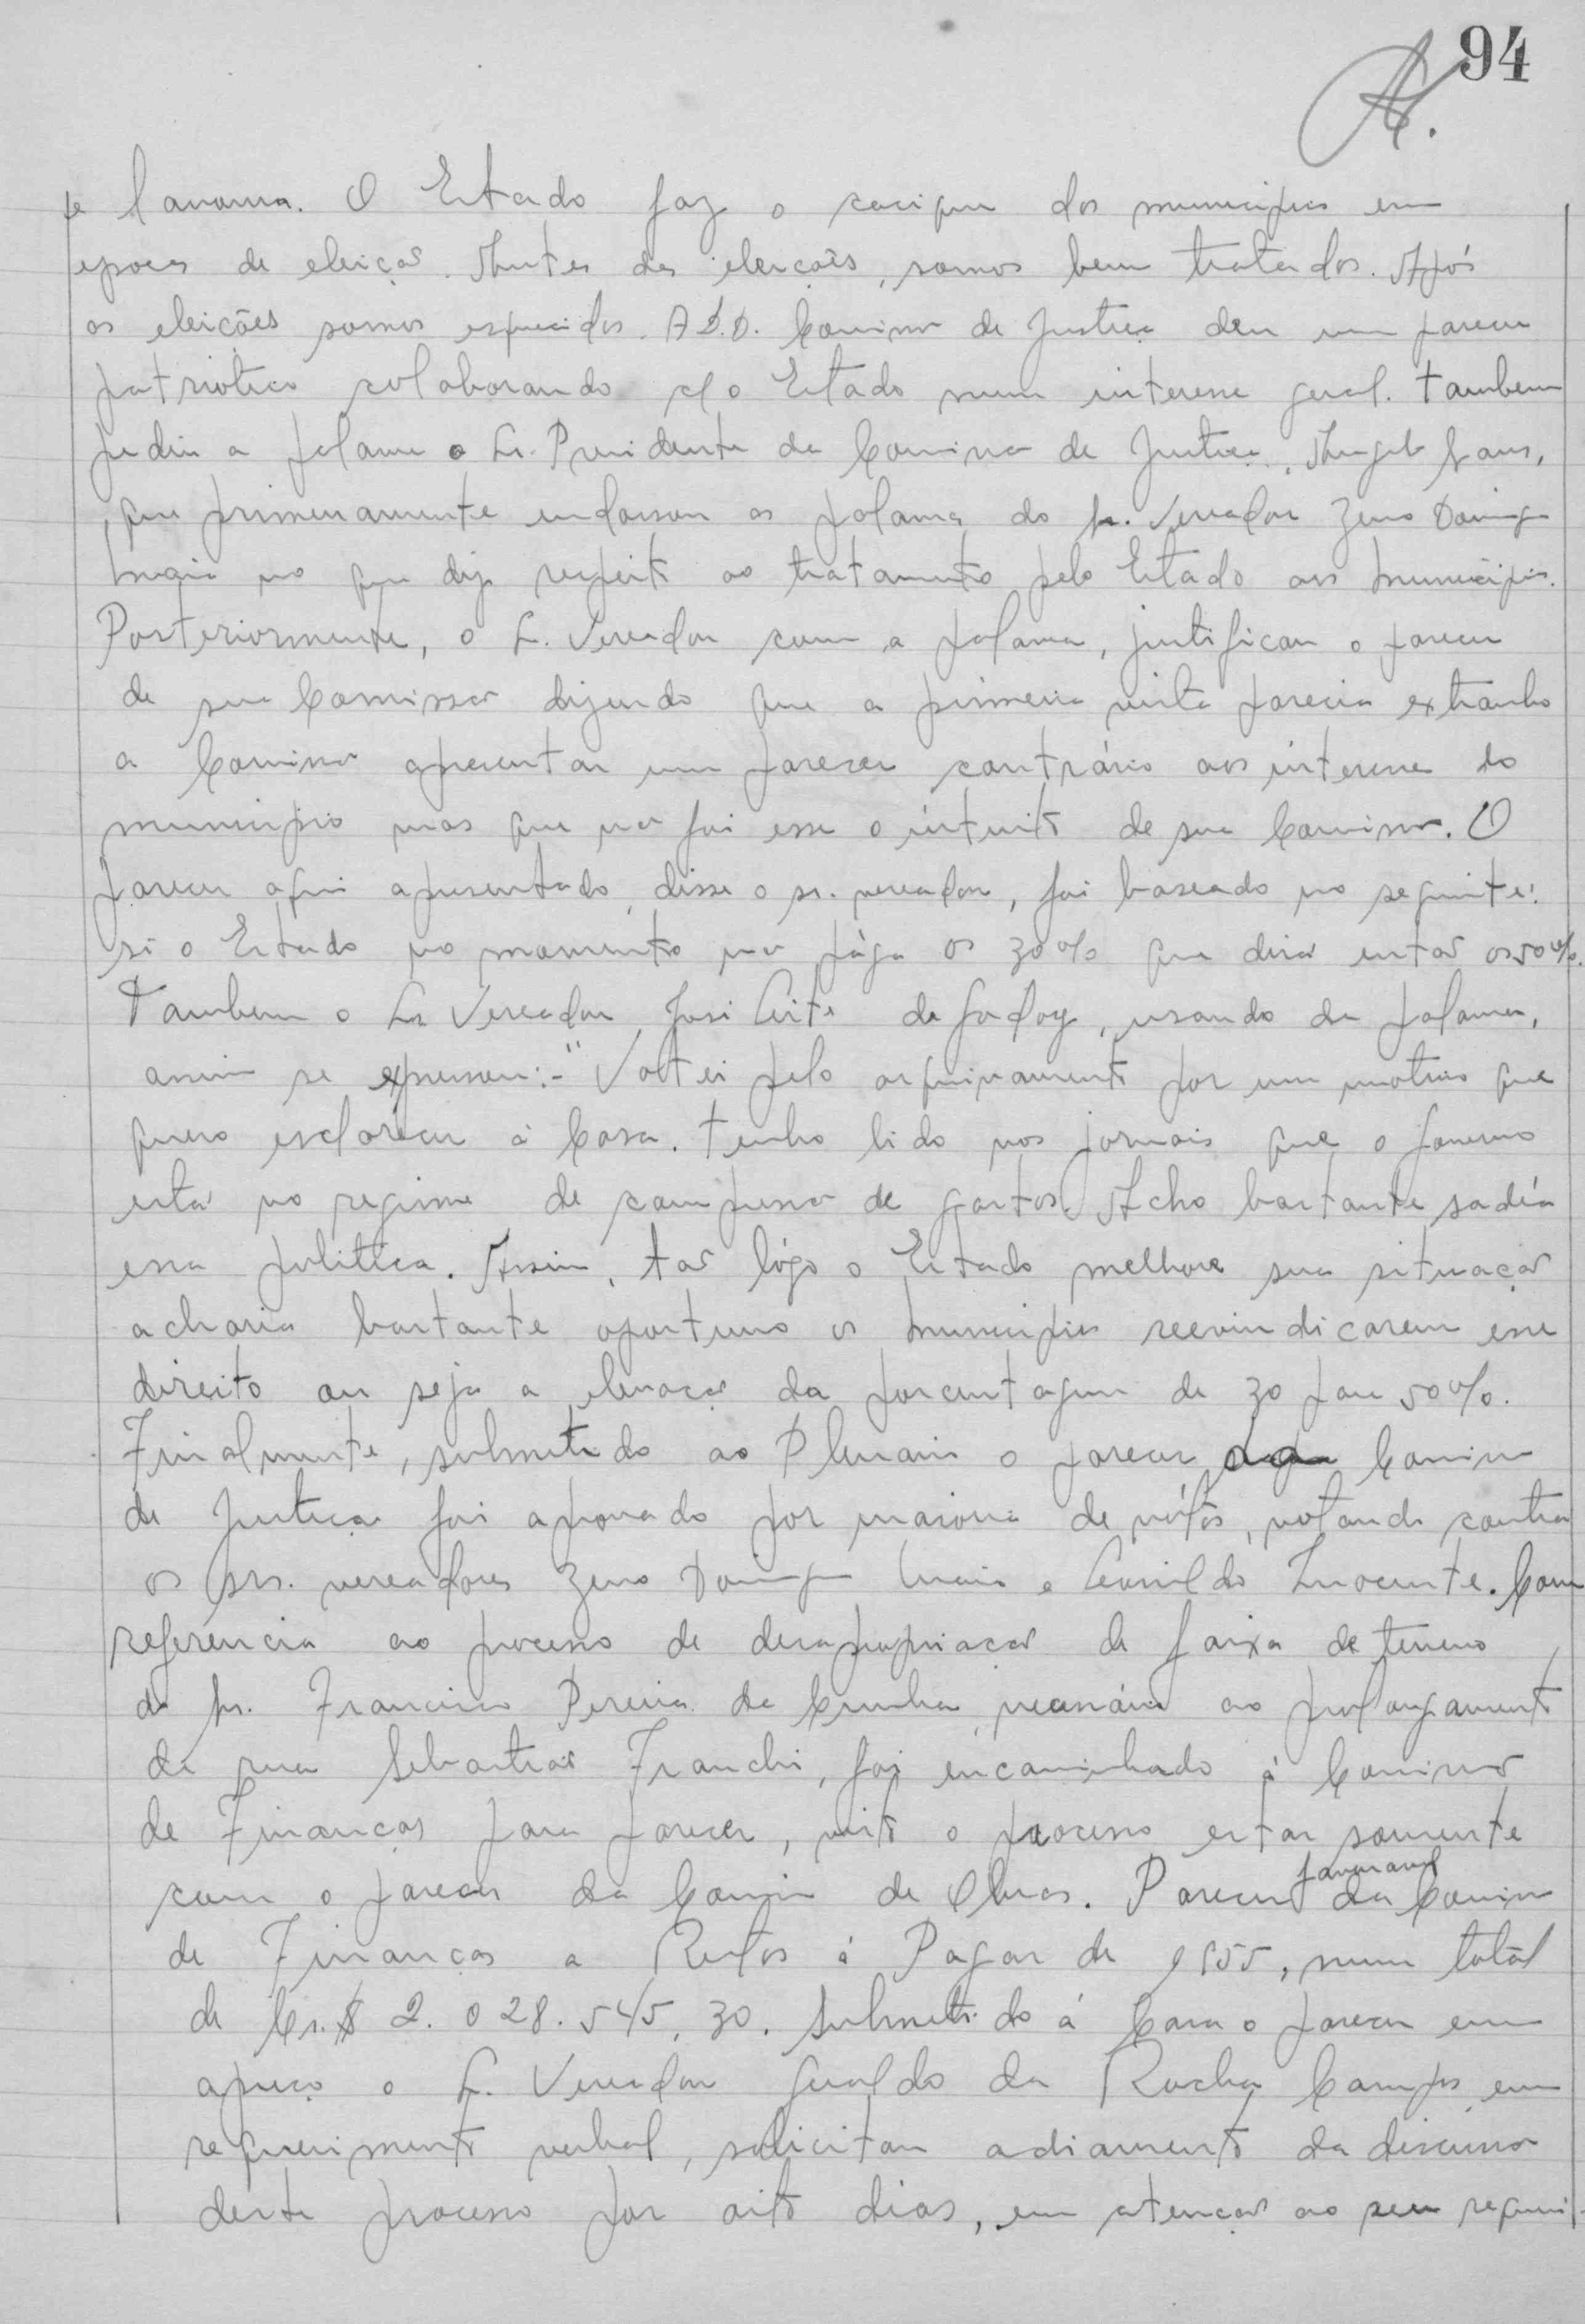 94
O Estado faz o dos municipios em
epoca de eleição. Antes das eleições, somos bem tratados. Após
as eleições somos esquecidos. A D.D. Comissão de Justiça deu um parecer
patriotico colaborando c/ o Estado num interesse geral. Tambem
pediu a palavra o Sr. Presidente da Comissão de Justiça,
que primeiramente endossou as palavras do sr. Vereador Zeno
Maia no que diz respeito ao tratamento pelo Estado aos Municipios.
Posteriormente, o Sr. Vereador com a palavra, justificou o parecer
de sua Comissão dizendo que a primeira vista parecia extranho
a Comissão apresentar um parecer contrário aos interesse do
municipio mas que não foi esse o intuito de sua Comissão. O
parecer aqui apresentado, disse o sr. vereador, foi baseado no seguinte:
si o Estado no momento não pága os 30% que dirá então os 50%.
Tambem o Sr. Vereador José Leite de Godoy, usando da palavra,
assim se expressou:- "Votei pelo arquivamento por um motivo que
quero esclarecer à Casa. Tenho lido nos jornais que o Governo
está no regime de compressão de gastos. Acho bastante sadía
essa politica. Assim, tão lógo o Estado melhore sua situação
acharia bastante oportuno os Municipios reevindicarem esse
direito ou seja a elevação da porcentagem de 30 para 50%.
Finalmente, submetido ao Plenario o parecer da Comissão
de Justiça foi aprovado por maioria de vótos, votando contra
os srs. vereadores Zeno Maia e Inocente. Com
referencia ao processo de desapropriação de faixa de terreno
do sr. Francisco Pereira da Cunha, necessária ao prolongamento
da rua Sebastião Franchi, foi encaminhado á Comissão
de Finanças para parecer, visto o processo estar somente
com o parecer da Comissão de Obras. Parecer favoravel da Comissão
de Finanças a Restos á Pagar de 1955, num total
de Cr.$ 2.028.545,30. Submetido á Casa o parecer em
apreço o Sr. Vereador Geraldo da Rocha Campos em
requerimento verbal, solicitou adiamento da discussão
deste processo por oito dias, em atenção ao seu requeri-